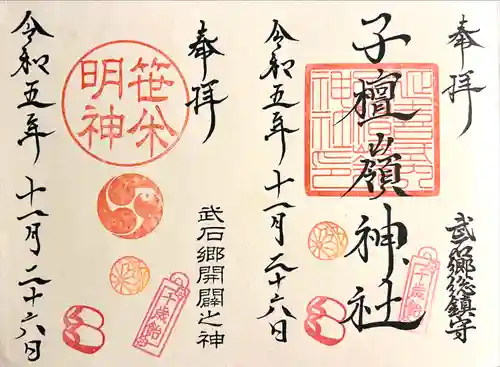 奉拝
武石郷総鎮守
子檀嶺神社
千歳飴
令和五年十一月二十六日
奉拝
武石郷開闢之神
笹焼
明神
千歳飴
令和五年十一月二十六日